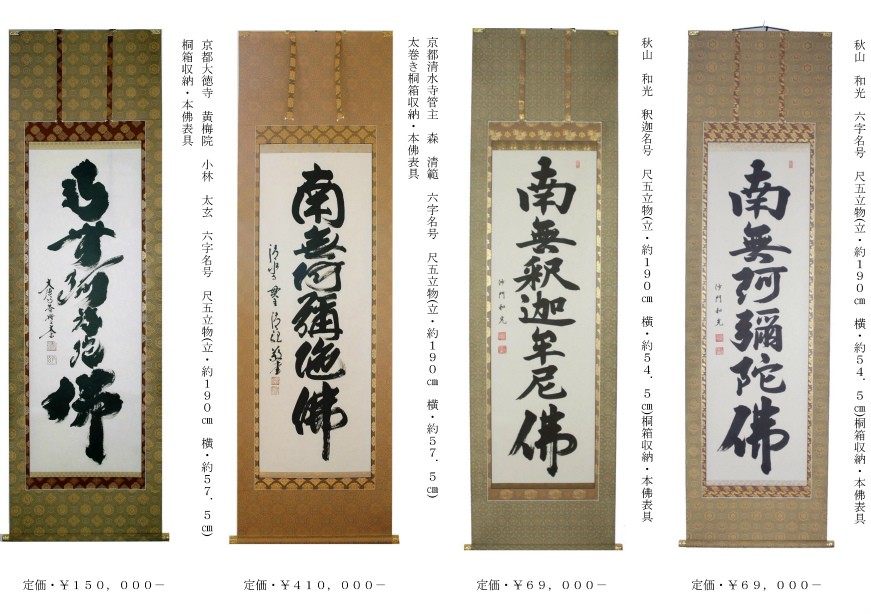 南無阿弥陀佛
京都大徳寺　黄梅院　小林　太玄　六字名号　尺五立物(立・約１９０㎝　横・約５７．５㎝)
桐箱収納・本佛表具
定価・￥１５０，０００－
南無阿彌陀佛
京都清水寺管主　森　清範　六字名号　尺五立物(立・約１９０㎝　横・約５７．５㎝)
太巻き桐箱収納・本佛表具
定価・￥４１０，０００－
南無釈迦牟尼佛
沙門和光
秋山　和光　釈迦名号　尺五立物(立・約１９０㎝　横・約５４．５㎝)桐箱収納・本佛表具
定価・￥６９，０００－
南無阿彌陀佛
沙門和光
秋山　和光　六字名号　尺五立物(立・約１９０㎝　横・約５４．５㎝)桐箱収納・本佛表具
定価・￥６９，０００－